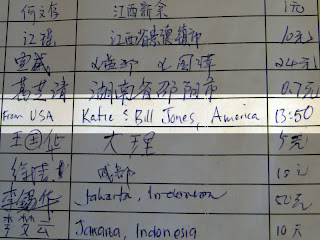 何文存 江西新余 1元
江瑶 江西省景德镇市 10元
24元
湖南省邵阳市 0.7元
From USA Katie & Bill Jones, America 13:50
王国 大理 5元
成都 10元
李锡华 Jakarta, Indonesia 50元
李梦云 Jakarta, Indonesia 10元